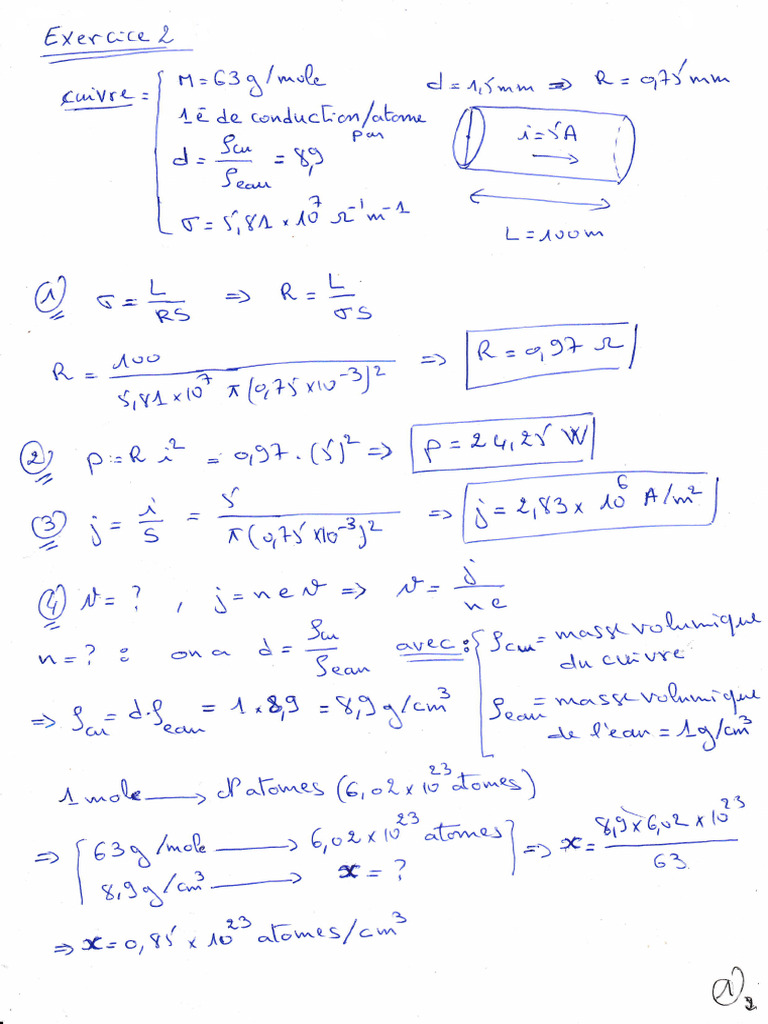 Exercice 2
cuivre = { M = 63 g/mole
1 ē de conduction/atome
par
d = ρcu/ρeau = 8,9
σ = 5,81 × 10⁷ Ω⁻¹ m⁻¹
d = 1,5 mm ⇒ R = 0,75 mm
i = 5A
L = 100 m
① σ = L/RS ⇒ R = L/σS
R = 100/(5,81 × 10⁷ π (0,75 × 10⁻³)²) ⇒ R = 0,97 Ω
② p = R i² = 0,97 . (5)² ⇒ p = 24,25 W
③ j = i/S = 5/(π (0,75 × 10⁻³)²) ⇒ j = 2,83 × 10⁶ A/m²
④ v = ? , j = n e v ⇒ v = j/ne
n = ? : on a d = ρcu/ρeau avec : { ρcu = masse volumique
du cuivre
⇒ ρcu = d.ρeau = 1 × 8,9 = 8,9 g/cm³
ρeau = masse volumique
de l'eau = 1g/cm³
1 mole → N atomes (6,02 × 10²³ atomes)
⇒ [ 63 g/mole → 6,02 × 10²³ atomes
8,9 g/cm³ → x = ? ] ⇒ x = 8,9 × 6,02 × 10²³/63
⇒ x = 0,85 × 10²³ atomes/cm³
① 2